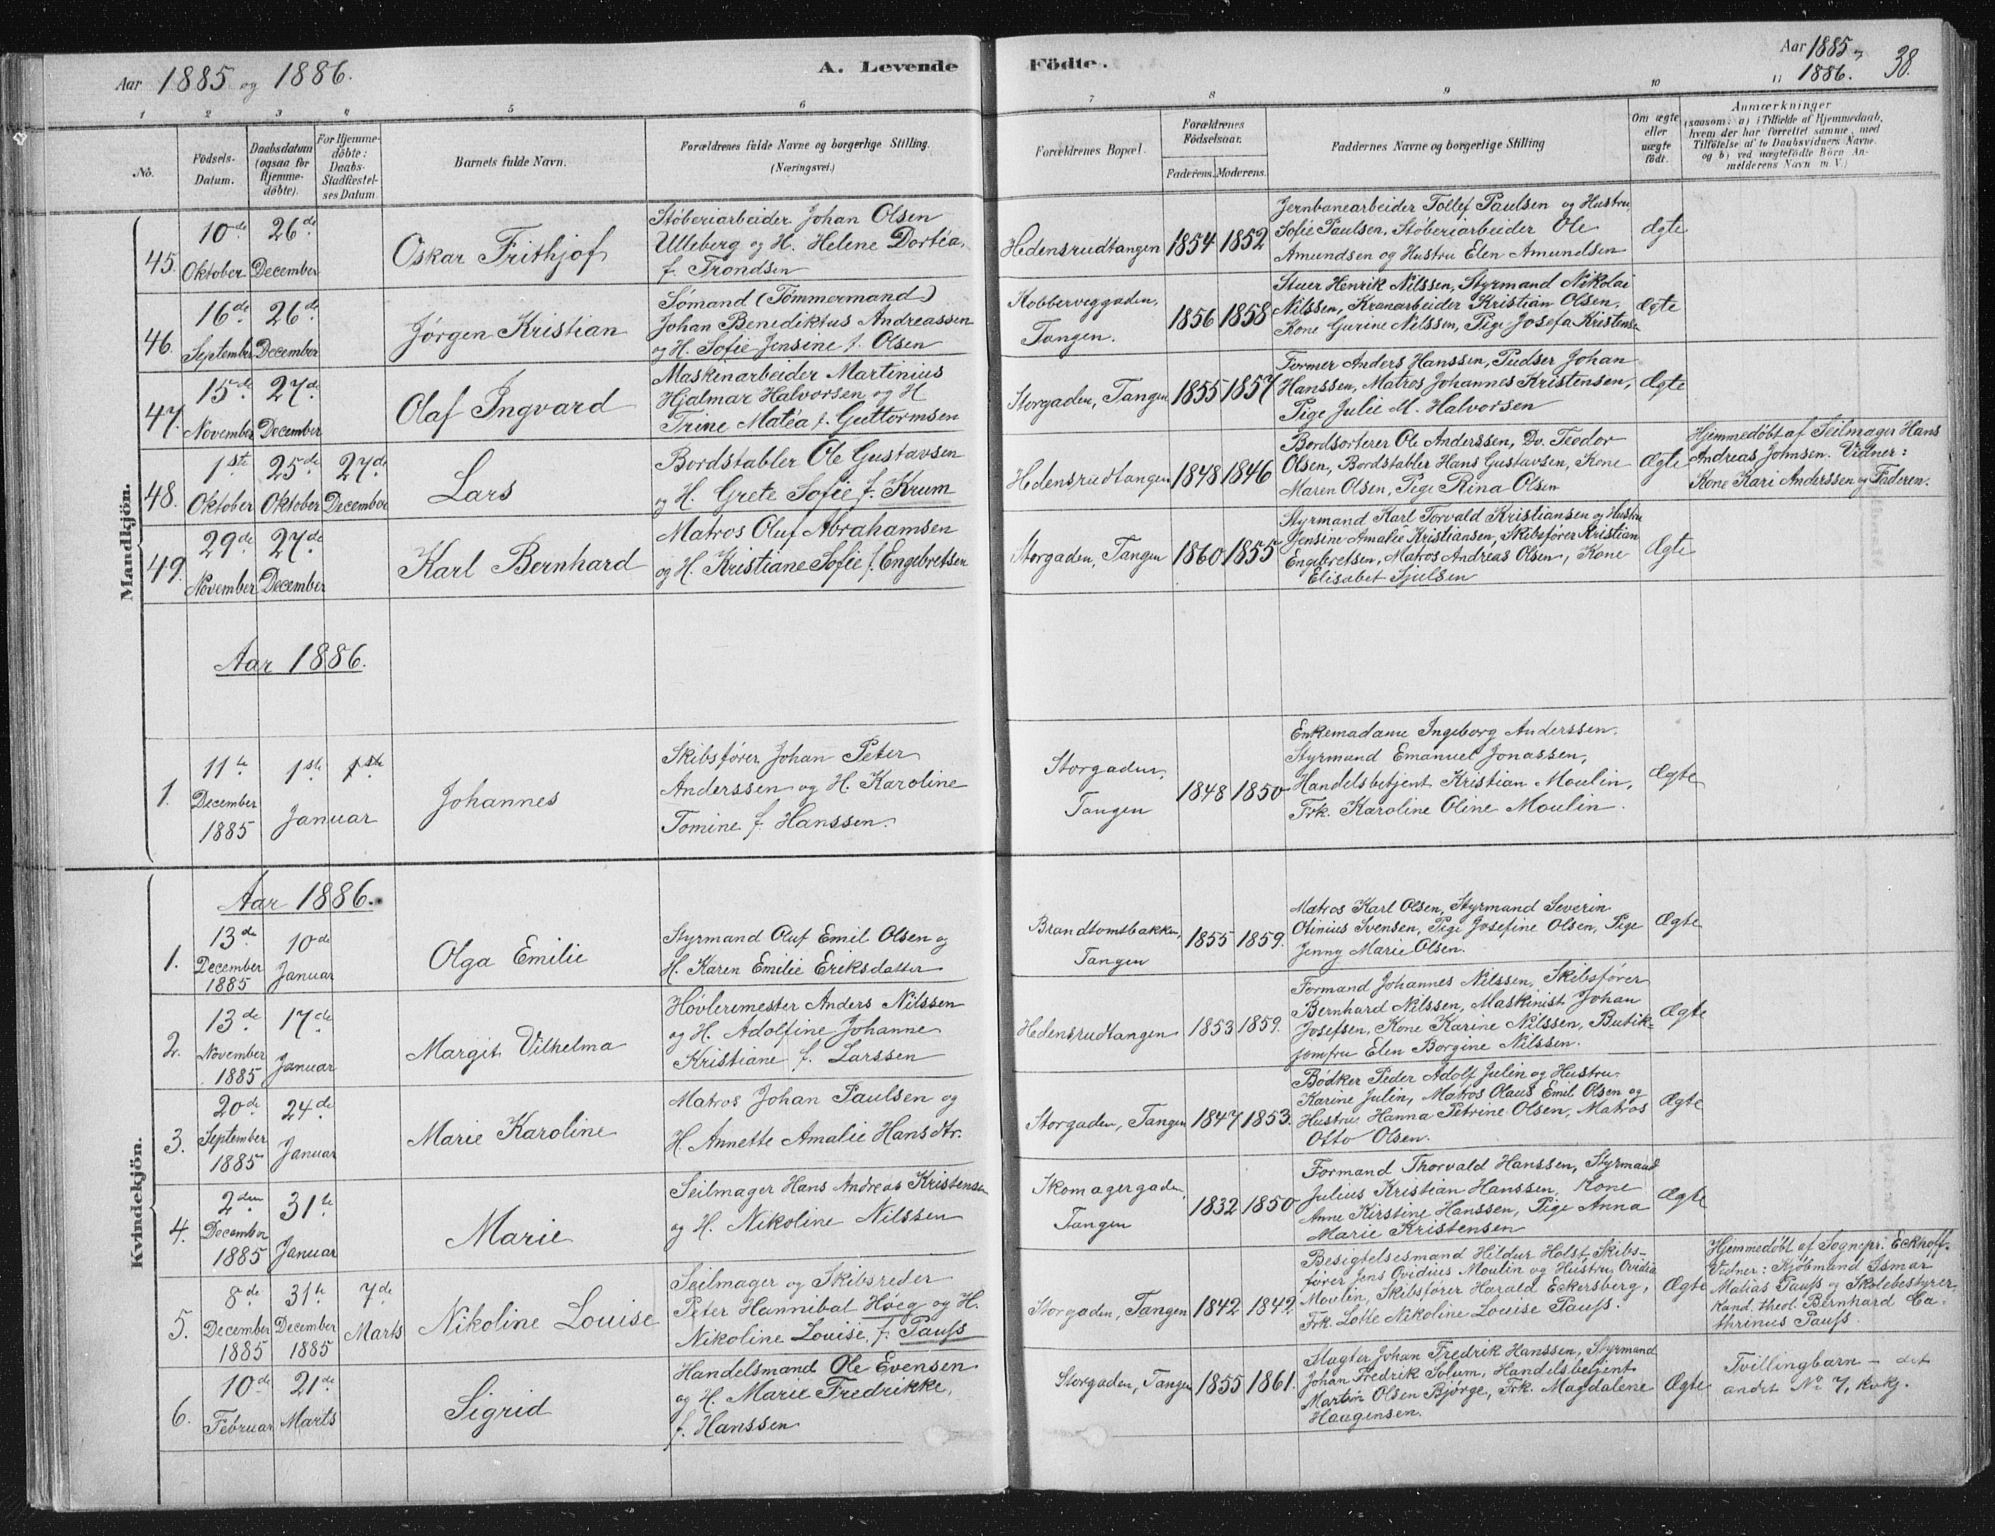 Aar 1885 og 1886.
A. Levende
Födte.
Aar 1885 og
1886.
38.
1 2 3 4 5 6 7 8 9 10 11
No.
Födsels-
Datum.
Daabsdatum
(ogsaa for
Hjemme-
döbte).
For Hjemme-
döbte:
Daabs-
Stadfæstel-
ses Datum.
Barnets fulde Navn.
Forældrenes fulde Navne og borgerlige Stilling.
(Næringsvei.)
Forældrenes Bopæl.
Forældrenes
Födselsaar.
Faderens. Moderens.
Faddernes Navne og borgerlige Stilling
Om ægte
eller
uægte
födt.
Anmærkninger
(saasom: a) i Tilfælde af Hjemmedaab,
hvem der har forrettet samme, med
Tilföielse af to Daabsvidners Navne.
og b) ved uægtefödte Börn An-
melderens Navn m. V.)
Mandkjön.
45.
10de
Oktober
26de
December
Oskar Frithjof
Støberiarbeider Johan Olsen
Ulleberg og H. Helene Dortea,
f. Trondsen
Hedensrudtangen
1854 1852
Jernbanearbeider Tollef Paulsen og Hustru
Sofie Paulsen, Støberiarbeider Ole
Amundsen og Hustru Elen Amundsen
Ægte
46.
16de
September
26de
December
Jørgen Kristian
Sømand (Tømmermand)
Johan Benediktus Andreassen
og H. Sofie Jensine f. Olsen
Kobberveggaden,
Tangen.
1856 1858
Stuer Henrik Nilssen, Styrmand Nikolai
Nilssen, Kranarbeider Kristian Olsen.
Kone Gurine Nilssen, Pige Josefa Kristense
Ægte
47.
15de
November
27de
December
Olaf Ingvard
Maskinarbeider Martinius
Hjalmar Halvorsen og H
Trine Matea f. Guttormsen
Storgaden, Tangen
1855 1857
Former Anders Hanssen, Pudser Johan
Hanssen, Matros Johannes Kristensen,
Pige Julie M. Halvorsen
Ægte
48.
1ste
Oktober
25de
Oktober
27de
December
Lars
Bordstabler Ole Gustavsen
og H. Grete Sofie f. Krum
Hedensrudtangen
1848 1846
Bordsorterer Ole Anderssen, Do. Teodor
Olsen, Bordstabler Hans Gustavsen, Kone
Maren Olsen, Pige Rina Olsen
Ægte
Hjemmedøbt af Seilmager Hans
Andreas Johnsen. Vidner:
Kone Kari Anderssen og Faderen.
49.
29de
November
27de
December
Karl Bernhard
Matros Oluf Abrahamsen
og H. Kristiane Sofie f. Engebretsen
Storgaden, Tangen
1860 1855
Styrmand Karl Torvald Kristiansen og Hustru
Jensine Amalie Kristiansen, Skibsfører Kristian
Engebretsen, Matros Andreas Olsen, Kone
Elisabet Sjulsen
Ægte
Aar 1886.
1.
11te
December
1885
1ste
Januar
1ste
Johannes
Skibsfører Johan Peter
Anderssen og H. Karoline
Tomine f. Hanssen.
Storgaden,
Tangen
1848 1850
Enkemadame Ingeborg Anderssen.
Styrmand Emanuel Jonassen,
Handelsbetjent Kristian Moulin,
Frk. Karoline Oline Moulin.
Ægte
Kvindekjön.
Aar 1886.
1.
13de
December
1885
10de
Januar
Olga Emilie
Styrmand Oluf Emil Olsen og
H. Karen Emilie Eriksdatter
Brandtomtbakken,
Tangen
1855 1859.
Matros Karl Olsen, Styrmand Severin
Otinius Svensen, Pige Josefine Olsen, Pige
Jenny Marie Olsen.
Ægte
2.
13de
November
1885
17de
Januar
Margit Vilhelma
Høvleremester Anders Nilssen
og H. Adolfine Johanne
Kristiane f. Larssen
Hedensrudtangen
1853 1859.
Formand Johannes Nilssen, Skibsfører
Bernhard Nilssen, Maskinist Johan
Josefsen, Kone Karine Nilssen, Butik-
jomfru Elen Borgine Nilssen.
Ægte
3.
20de
September
1885
24de
Januar
Marie Karoline
Matros Johan Paulsen og
H. Annette Amalie Hansdtr.
Storgaden, Tangen
1847 1853.
Bødker Peder Adolf Julin og Hustru
Karine Julin, Matros Olaus Emil Olsen og
Hustru Hanna Petrine Olsen, Matros
Otto Olsen.
Ægte
4.
2den
December
1885
31te
Januar
Marie
Seilmager Hans Andreas Kristensen
og H. Nikoline Nilssen
Skomagergaden,
Tangen
1832 1850
Formand Thorvald Hanssen, Styrmand
Julius Kristian Hanssen, Kone
Anne Kirstine Hanssen, Pige Anna
Marie Kristensen
Ægte
5.
8de
December
1885
31te
December
1885
7de
Marts
Nikoline Louise
Seilmager og Skibsreder
Peter Hannibal Høeg og H.
Nikoline Louise, f. Paufs
Storgaden, Tangen
1842 1849.
Besigtelsesmand Hildur Holst, Skibs-
fører Jens Ovidius Moulin og Hustru Ovidia
Moulin, Skibsfører Harald Eckersberg,
Frk. Lotte Nikoline Louise Paufs.
Ægte
Hjemmedøbt af Sognepr. Eckhoff.
Vidner: Kjøbmand Ismar
Matias Paufs og Skolebestyrer
Kand. theol. Bernhard Ca-
thrinus Paufs.
6.
10de
Februar
21de
Marts
Sigrid
Handelsmand Ole Evensen
og H. Marie Fredrikke,
f. Hanssen
Storgaden, Tangen
1855 1861.
Slagter Johan Fredrik Hanssen, Styrmand
Johan Fredrik Solum, Handelsbetjent
Martin Olsen Bjørge, Frk. Magdalene
Haagensen.
Ægte
Tvillingbarn – det
andet No 7, kvkj.